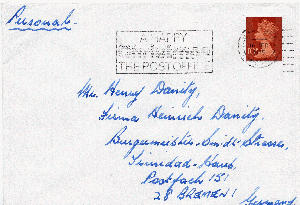 Personal
A HAPPY
THE POST OFFICE
Mr. Henry Danity,
Firma Heinrich Danity,
Burgermeister-Smidt-Strasse,
Trinidad-Haus,
Postfach 15
28 BREMEN 1
Germany